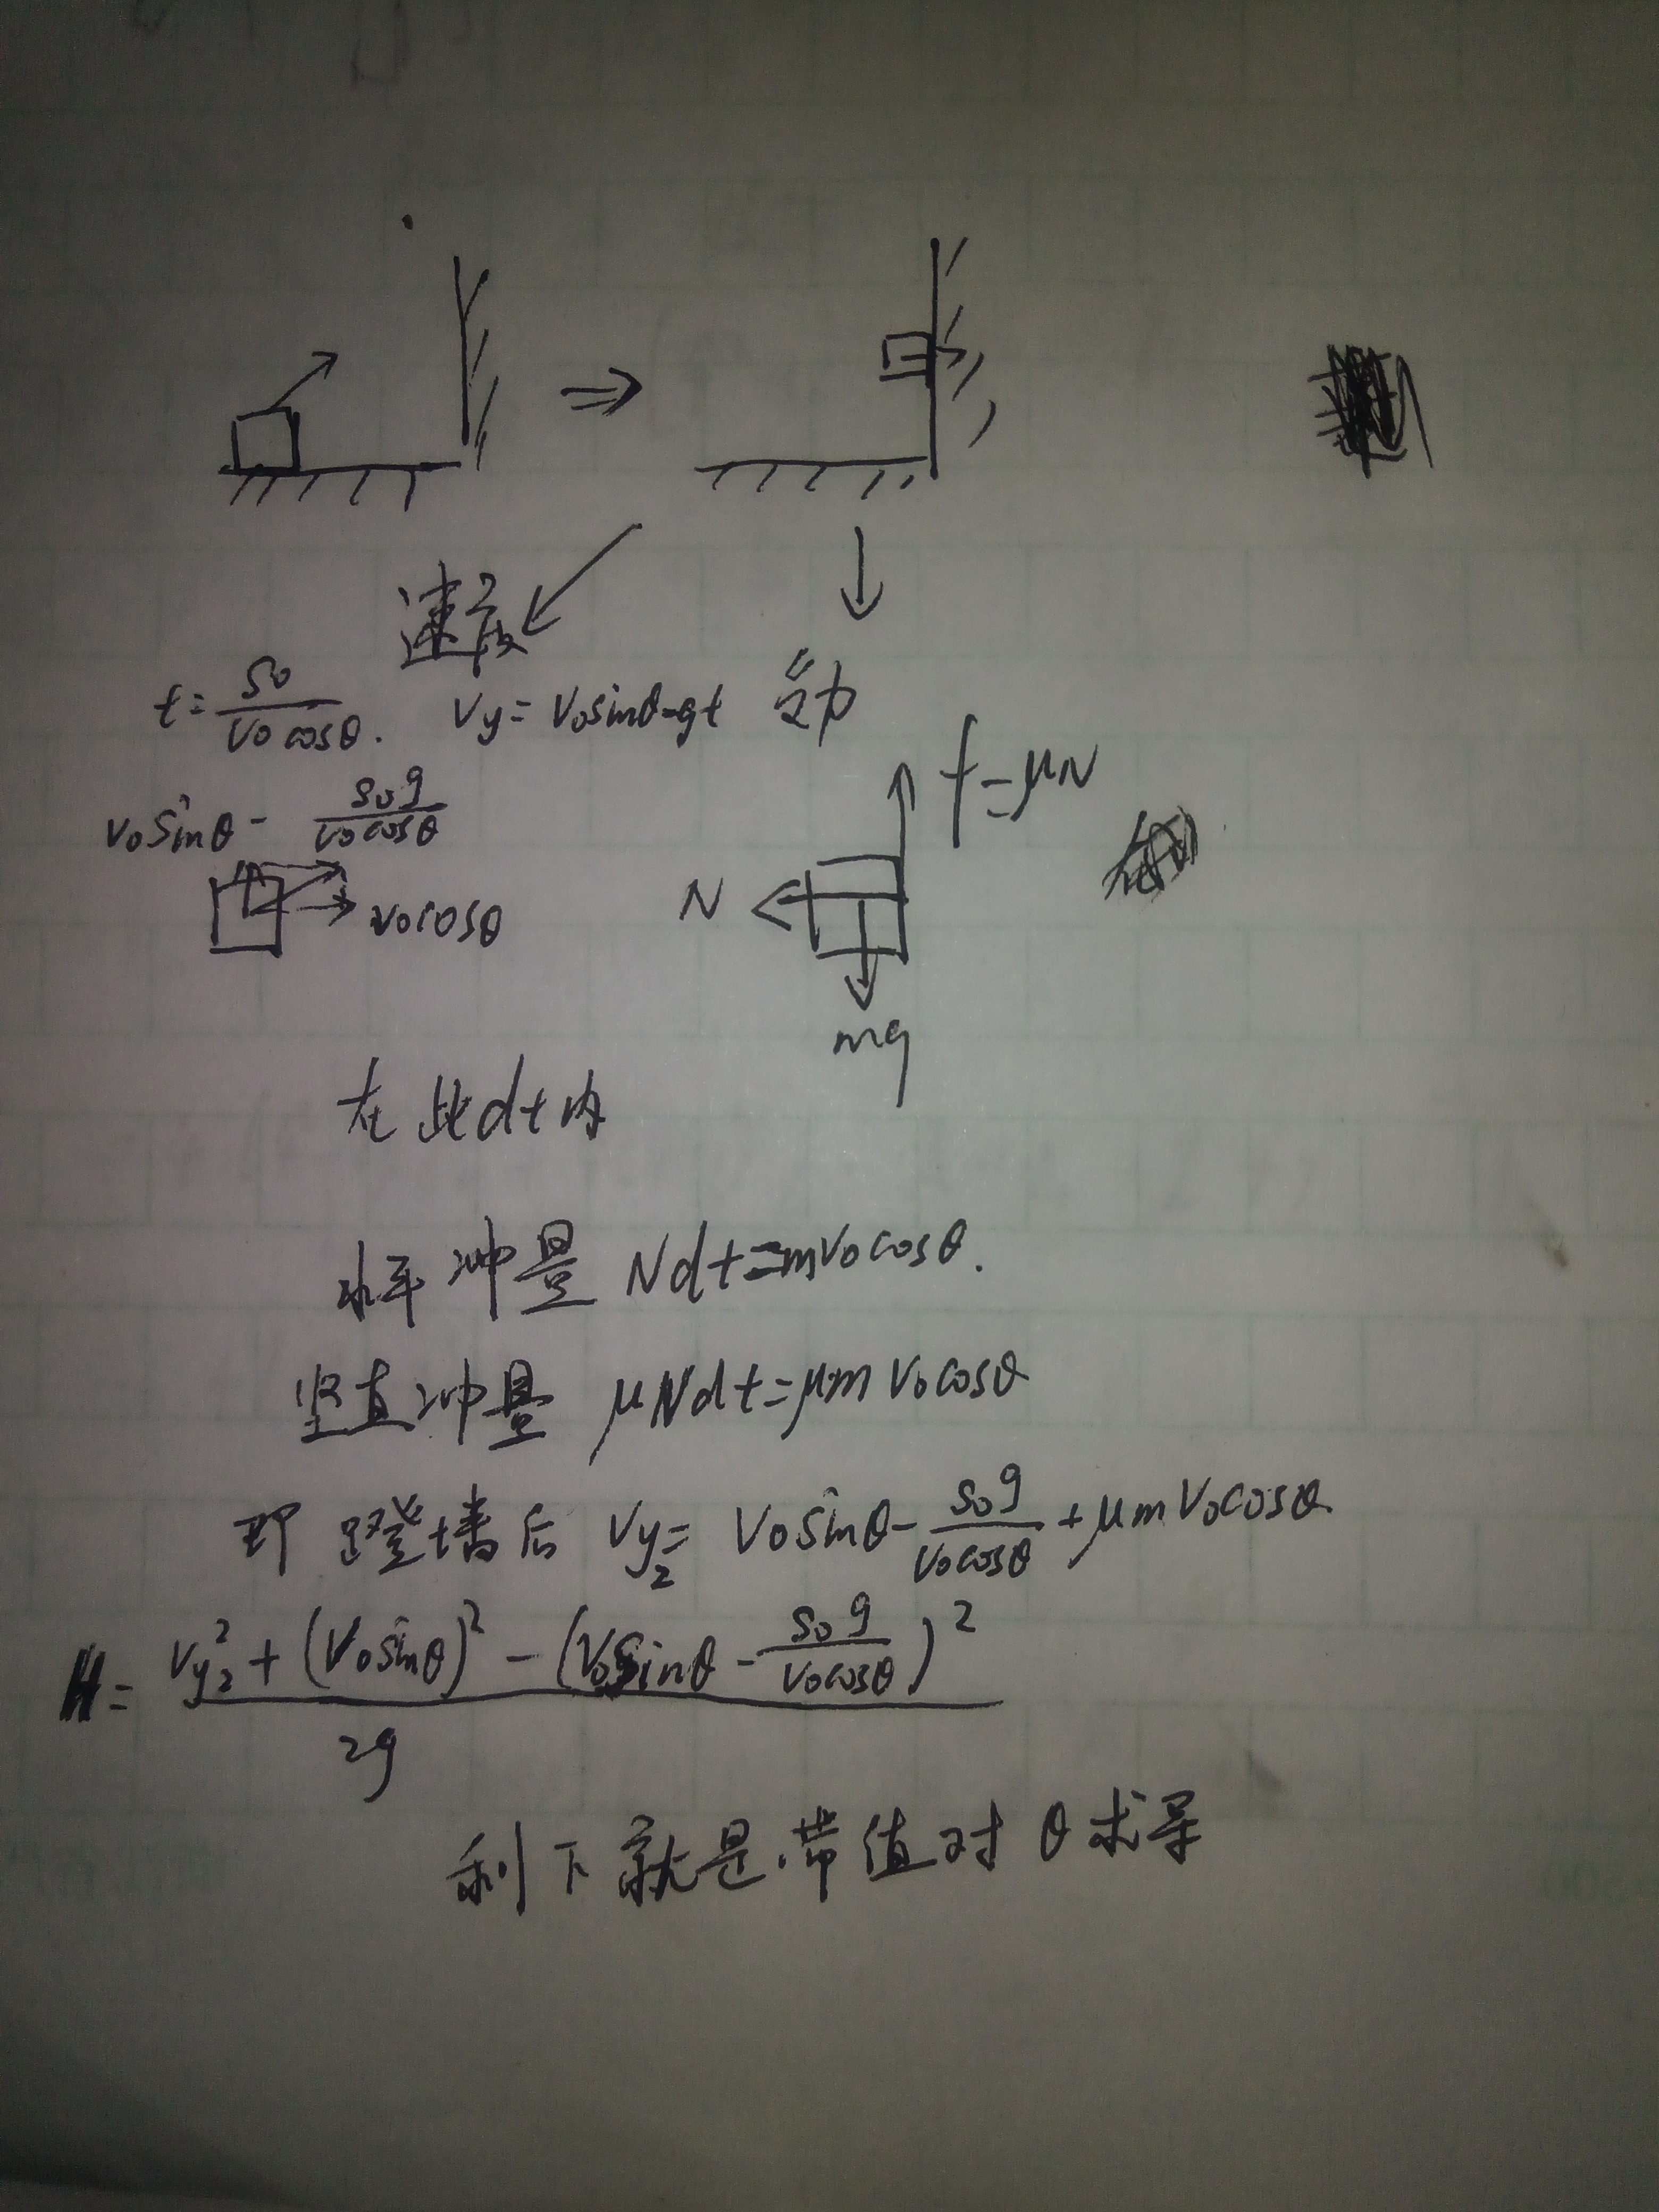 速度
t = S0/(V0cosθ). Vy = V0sinθ-gt 受力
f=μN
V0sinθ - S0g/(V0cosθ)
V0cosθ
N
mg
在此dt内
水平冲量 Ndt=mV0cosθ.
坚直冲量 μNdt=μmV0cosθ
即 蹬墙后 Vy2= V0sinθ- S0g/(V0cosθ) +μmV0cosθ.
H= (Vy2² + (V0sinθ)² - (V0sinθ - S0g/(V0cosθ))²)/2g
剩下就是带值对θ求导